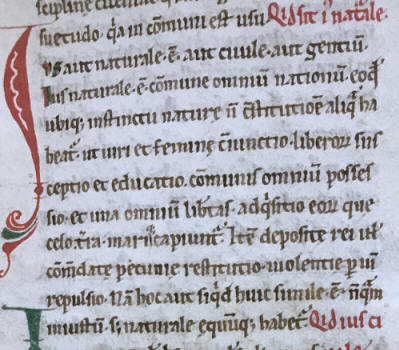 suetudo. q̄a in cōmuni est usu. Qid sit i' nat'ale.
us aut naturale. ē. aut ciuile. aut gentiū.
Ius naturale. ē. cōmune omniū nationū. eo qđ
ubiq; instinctu naturę n̄ cstitutiōe aliq̄ ha
beat'. ut uiri et feminę ciunctio. liberor̄ sus
ceptio et educatio. cōmunis omniū posses
sio. et una omniū lib'tas. adq̄sitio eor̄ que
celo. t'ra. mariq; capiunt'. Itē deposite rei ul'
cōmdatę pecunie restitutio. uiolentie p' uī
repulsio. Nā hoc aut siq̄d huic simile. ē. nq̄m
iniustū. s; naturale equūq; habet'. Qid ius ci